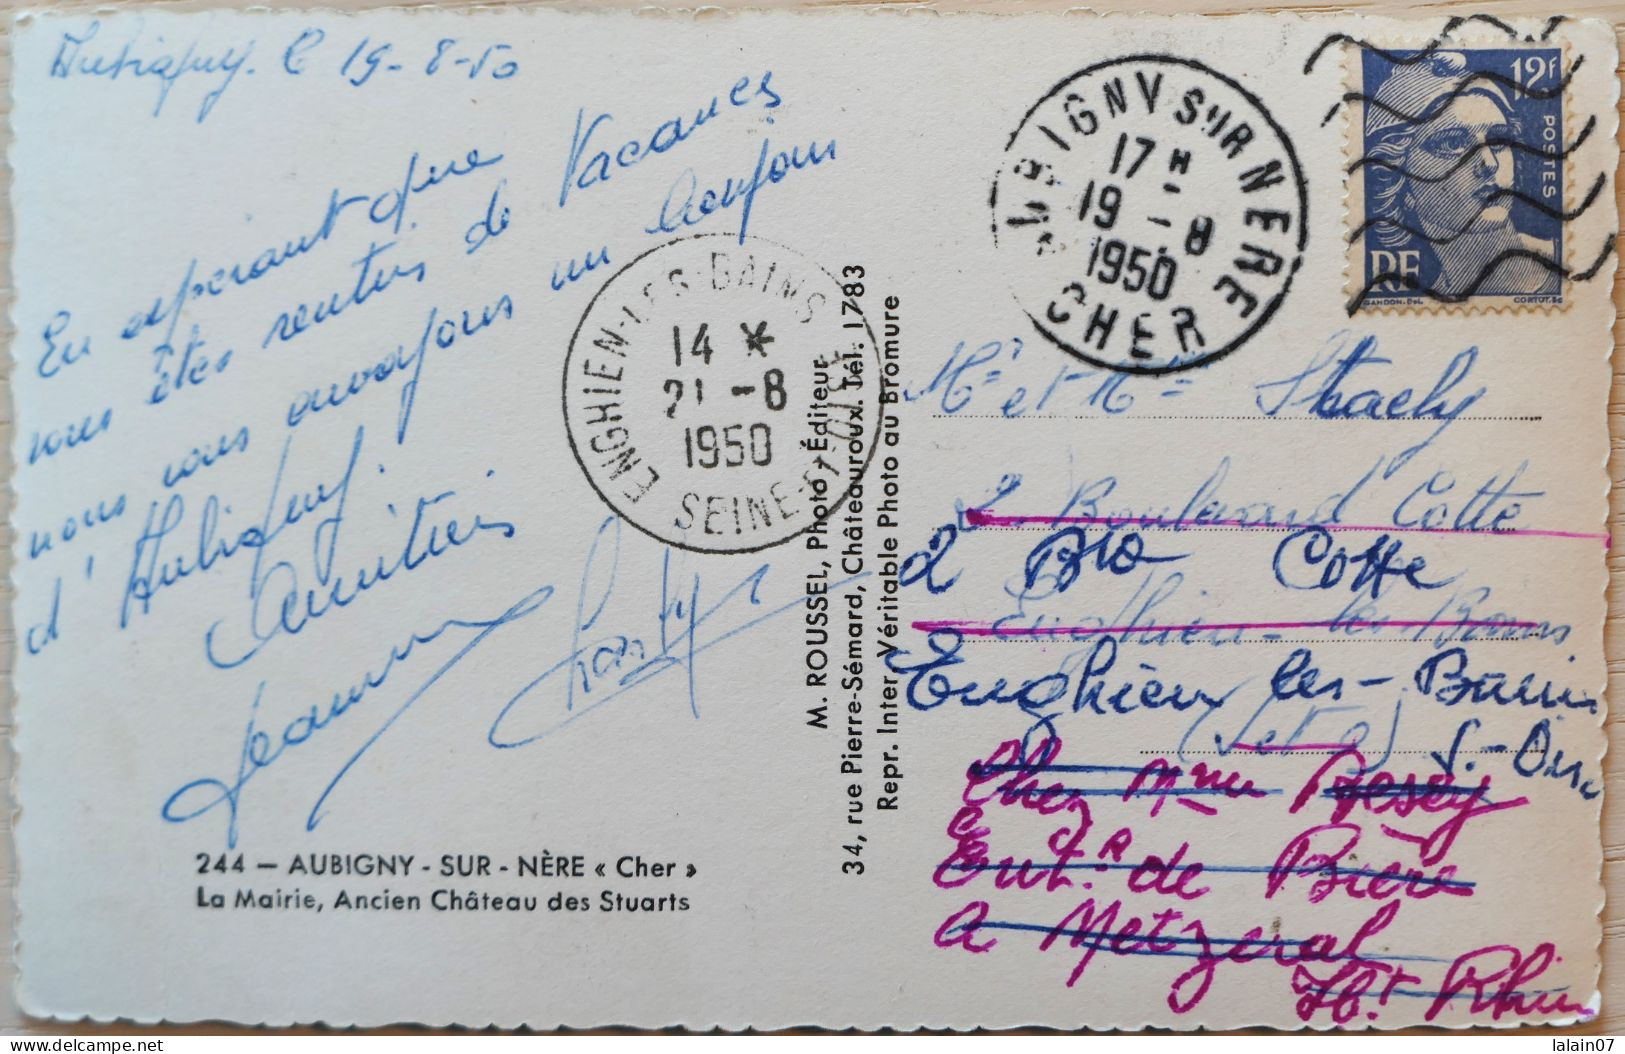 Aubigny le 19-8-50
En espérant que
vous êtes rentrés de Vacances
nous vous envoyons un bonjour
d'Aubigny.
Amitiés
Jeanne
244 — AUBIGNY - SUR - NÈRE « Cher »
La Mairie, Ancien Château des Stuarts
ENGHIEN-LES-BAINS
14 *
21 -8
1950
SEINE-ET-OISE
M. ROUSSEL, Photo-Éditeur
34, rue Pierre-Sémard, Châteauroux. Tél. 1783
Repr. Inter. Véritable Photo au Bromure
AUBIGNY SUR NERE
17 H
19 - 8
1950
CHER
12F
POSTES
RF
GANDON.DEL.
CORTOT.SC
Mr et Mme Stachy
2 Boulevard Cotte
2 Bld Cotte
Enghien-les-Bains
Enghien les-Bains
(S et O) S.-Oise
Chez Mme Resey
Ent. de Bière
A Metzeral
Ht Rhin
lalain07